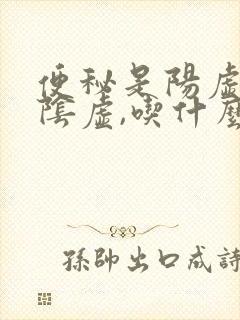 便秘是陽虛
陰虛,喫什麼
孫帥出口成詩